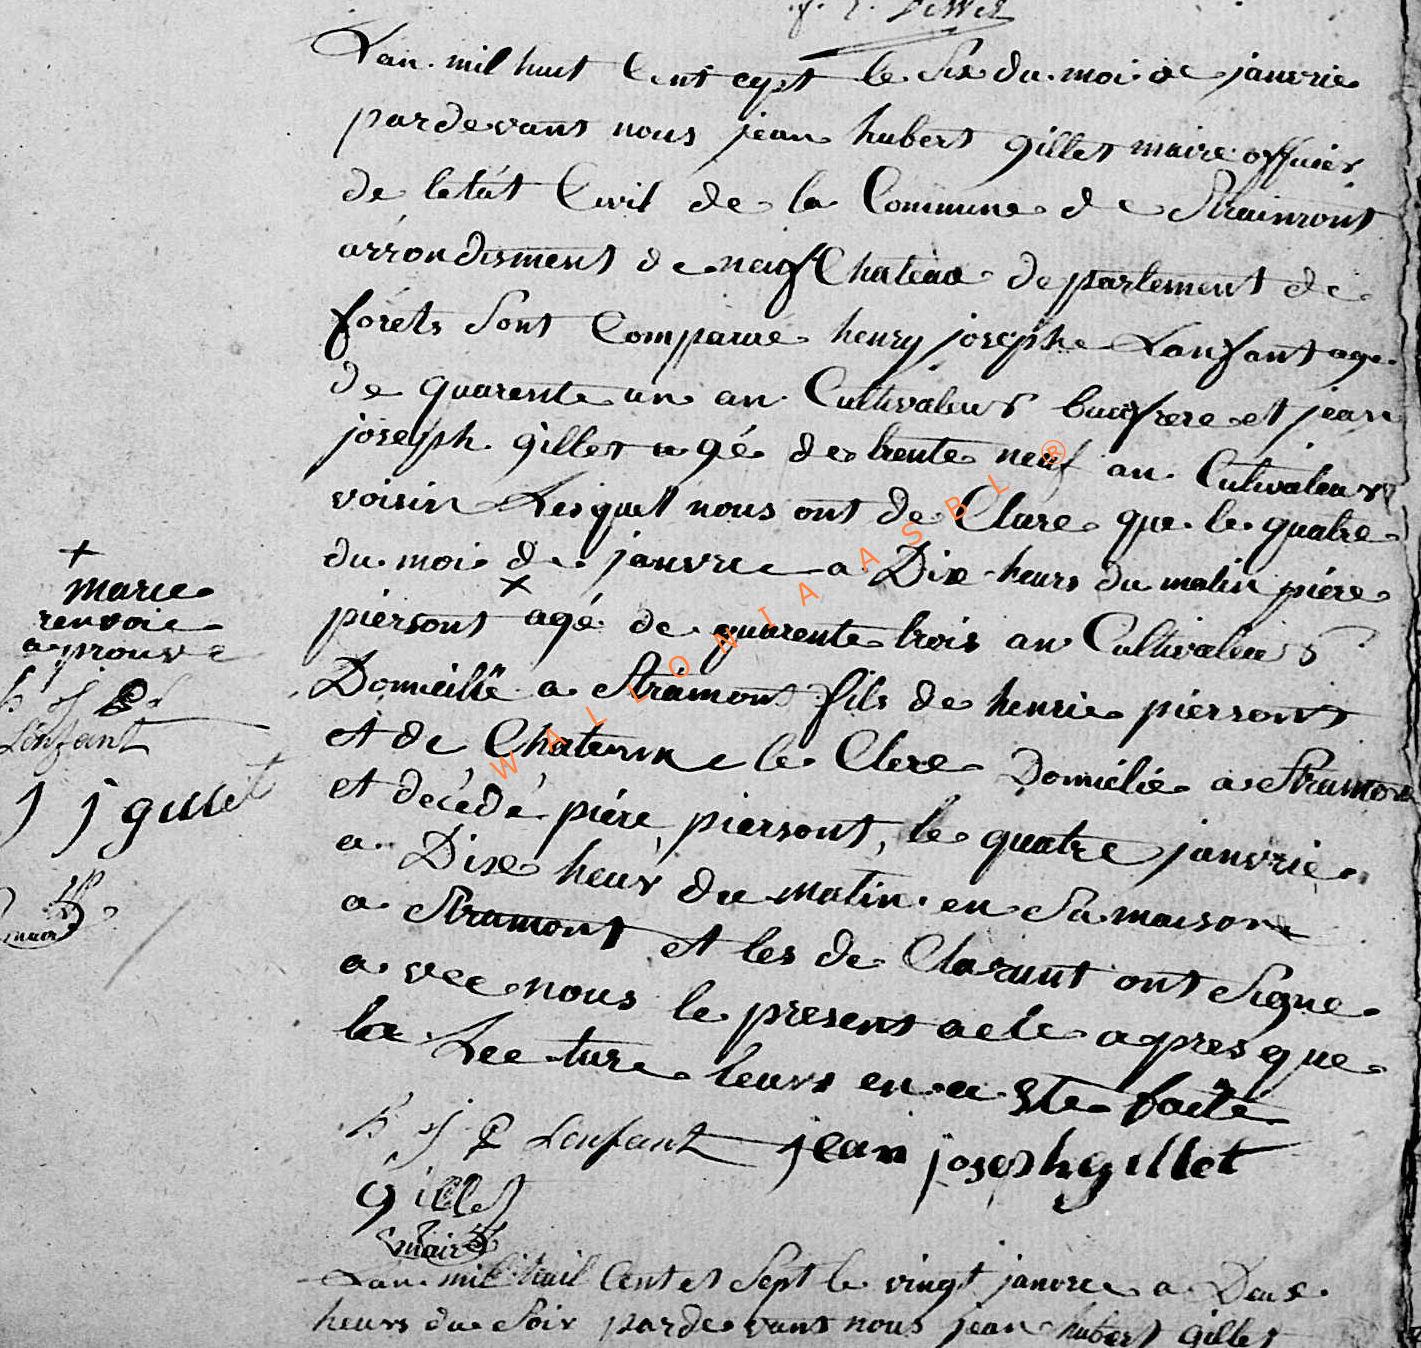 Lan mil huit Cent cept le Six du moi de janvrie
par devant nous jean hubert gillet maire officier
de letat Civil de la Commune de Straimont
arrondisment de neufChateau departement de
forêts Sont Comparue henry josephe Lanfant age
de quarente un an Cultivateur beaufrere et jean
joseph gillet agé de trente neuf an Cutivateur
voisin Lesquel nous ont de Clare que le quatre
du moi de janvre a Dix heurs du matin piére
+
marie
renvoie
aprouve
h j
Lenfant
j j gillet
maire
piersont × agé de quarente trois an Cultivateur
Domicilié a Stramont fils de henrie piersont
et de Chaterine le Clere Domicilié a Stramont
et decedé piére piersont, le quatre janvrie
a Dix heur du matin en Sa maison
a Stramont et les de Clarunt ont Signe
a vec nous le present acte apres que
la Lecture leurs en a Ete faite
h j Lenfant jean joseph gillet
gillet
maire
Lan mil huil Cent et Sept le vingt janvre a Deux
heurs du Soir par de vant nous jean hubert gillet
WALLONIA ASBL ®